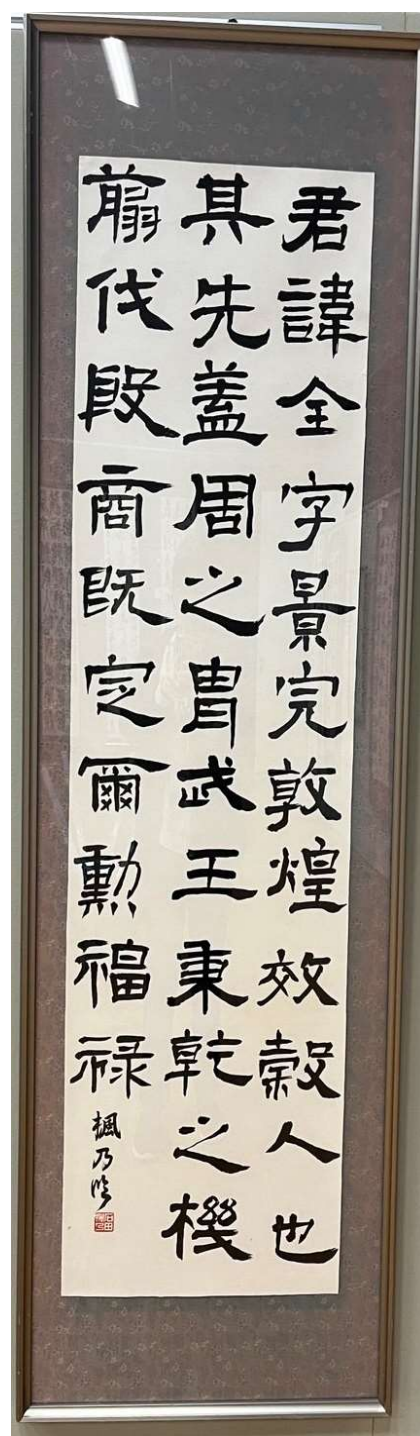 君諱全字景完敦煌效穀人也
其先蓋周之胄武王秉乾之機
翦伐殷商既定爾勳福禄
楓乃臨